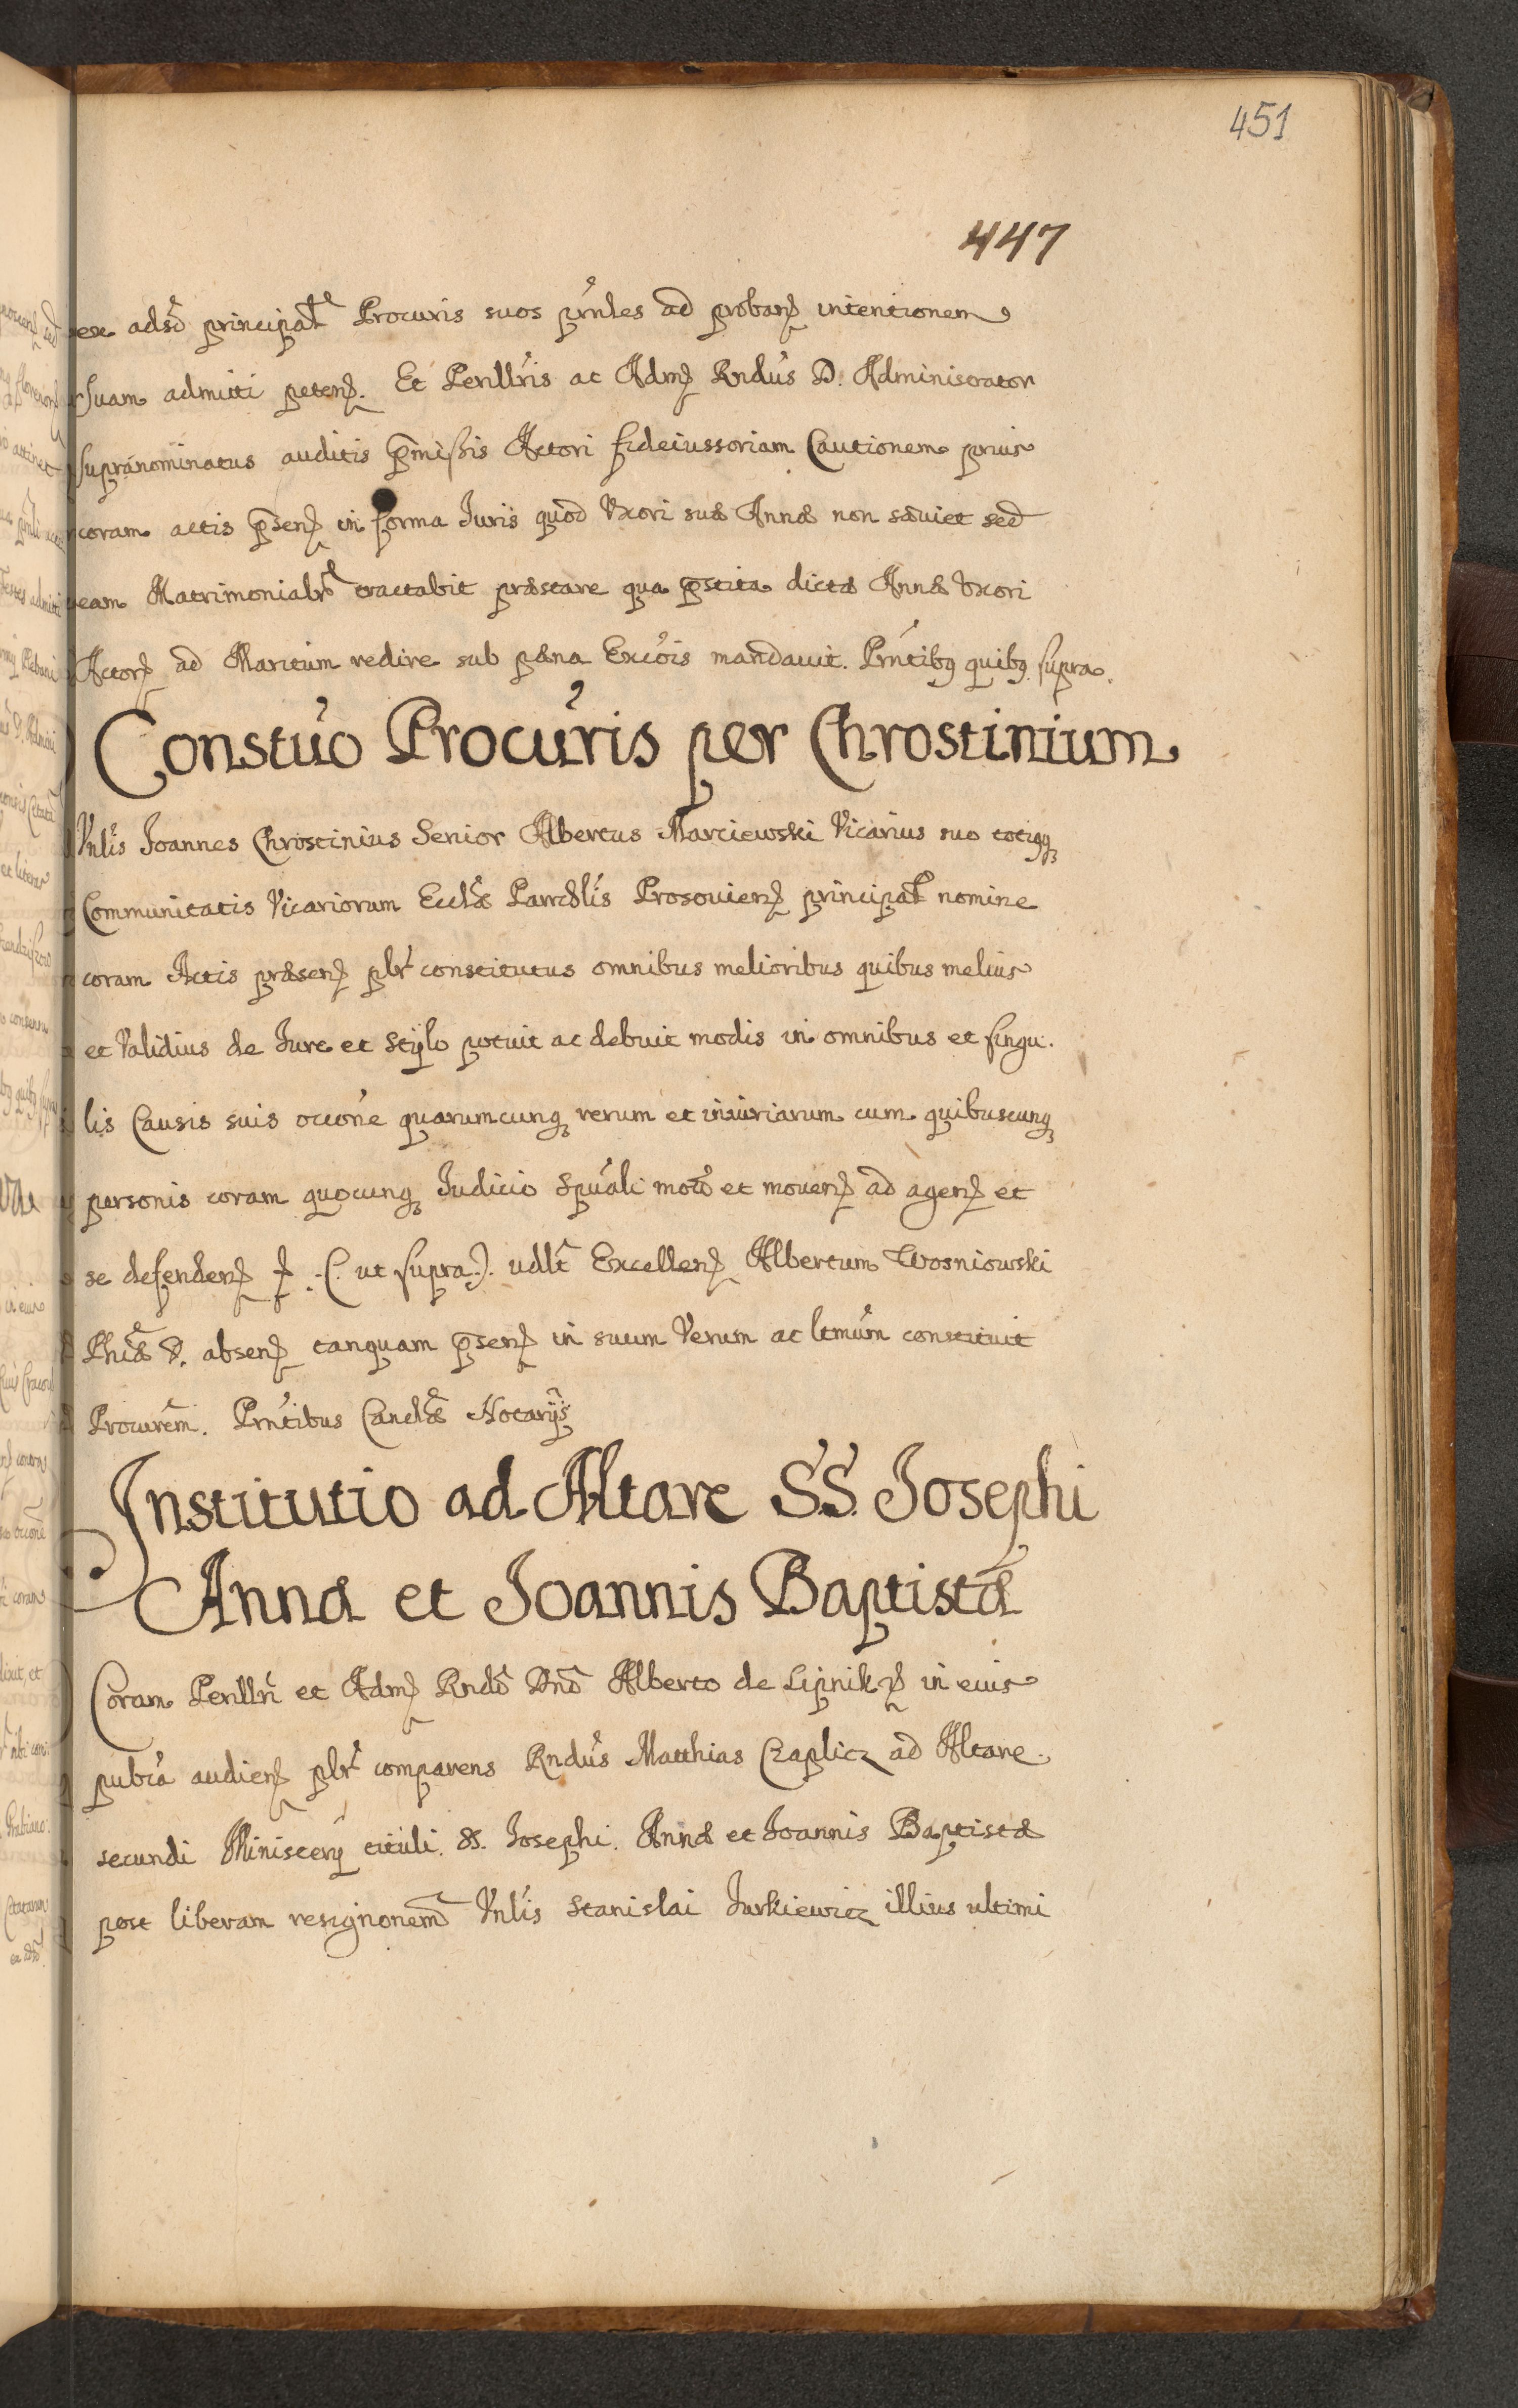 451
447
ex adsō principalr Procuris suos prn̄les ad proband intentionem
suam admitti peten. Et Perillr̄is ac Adm Rndus D. Administrator
supranominatus auditis p̄missis Actori fideiussoriam Cautionem prius
coram actis p̄sen in forma Iuris quod Vxori suæ Annæ non sæuiet sed
eam Matrimonialr tractabit præstare qua p̄stita dictæ Annæ Vxori
Actor ad Maritum redire sub pæna Excois mandauit. Prntibq quibq supra.
Constuo Procuris per Chrostinium
Vnlis Joannes Chrostinius Senior Albertus Marciewski Vicarius suo totiqq
Communitatis Vicariorum Ecclæ Parochlis Prosouien principalr nomine
coram Actis præsen plr constitutus omnibus melioribus quibus melius
et Validius de Iure et Stylo potuit ac debuit modis in omnibus et singu:
lis Causis suis occone quarumcunq rerum et iniuriarum cum quibuscunq
personis coram quocunq Iudicio Spuali moto et mouen ad agen et
se defenden (: ut supra :). vdlt Excellen Albertum Wosniowski
Phiæ D. absen tanquam p̄sen in suum Verum ac ltmum constituit
Procurem. Prntibus Cancellæ Notarijs
Institutio ad Altare SS. Josephi
Annæ et Joannis Baptistæ
Coram Perillri et Adm Rndo Dno Alberto de Lipnik in eius
publca audien plr comparens Rndus Matthias Czaplicz ad Altare
secundi Ministerij tituli SS. Josephi. Annæ et Joannis Baptistæ
post liberam resignonem Vnlis Stanislai Jurkiewicz illius ultimi